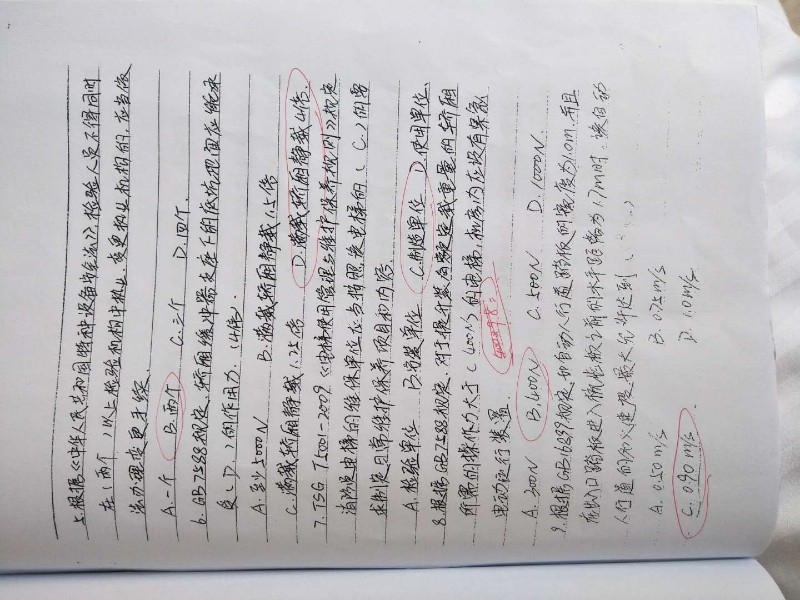 5.根据《中华人民共和国特种设备安全法》检验人员不得同时
在(两个)以上检验机构中执业、变更执业机构的,应当依
法办理变更手续。
A.一个 B.两个 C.三个 D.四个.
6.GB7588规定、轿厢缓冲器支座下的底坑地面应能承
受(D)的作用力. (4倍)
A.至少5000N B.满载轿厢静载1.5倍
C.满载轿厢静载1.25倍 D.满载轿厢静载4倍.
7.TSG T5001-2009《电梯使用管理与维护保养规则》规定
消防员电梯的维保单位应当按照该电梯的(C)的要
求制定日常维护保养项目和内容
A.检验单位 B.安装单位 C.制造单位 D.使用单位.
8.根据GB7588规定.对于提升装有额定载重量的轿厢
所需的操作力大于(400N)的电梯,机房内应设有紧急
电动运行装置
A.300N B.400N C.500N D.1000N
9.根据GB16899规定,如自动人行道踏板的宽度为1.0m.并且
在出入口踏板进入梳齿板之前的水平距离为1.7m时.该自动
人行道的名义速度最大允许达到( )
A.0.50m/s B.0.75m/s
C.0.90m/s D.1.0m/s.